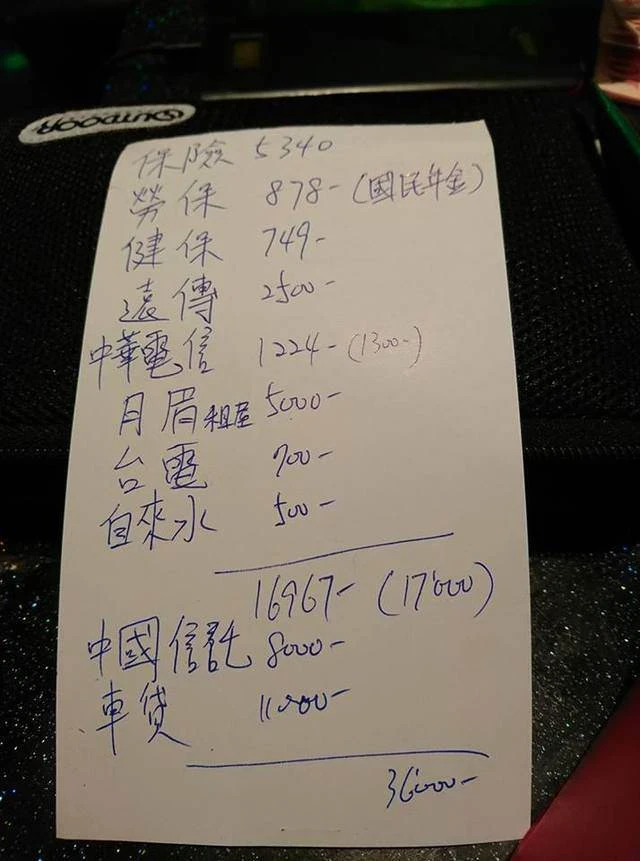 OUTDOOR
保險 5340
勞保 878-(國民年金)
健保 749-
遠傳 2500-
中華電信 1224-(1300-)
月眉租屋 5000-
台電 700-
自來水 500-
16967-(17'000)
中國信託 8000-
車貸 11000-
36'000-